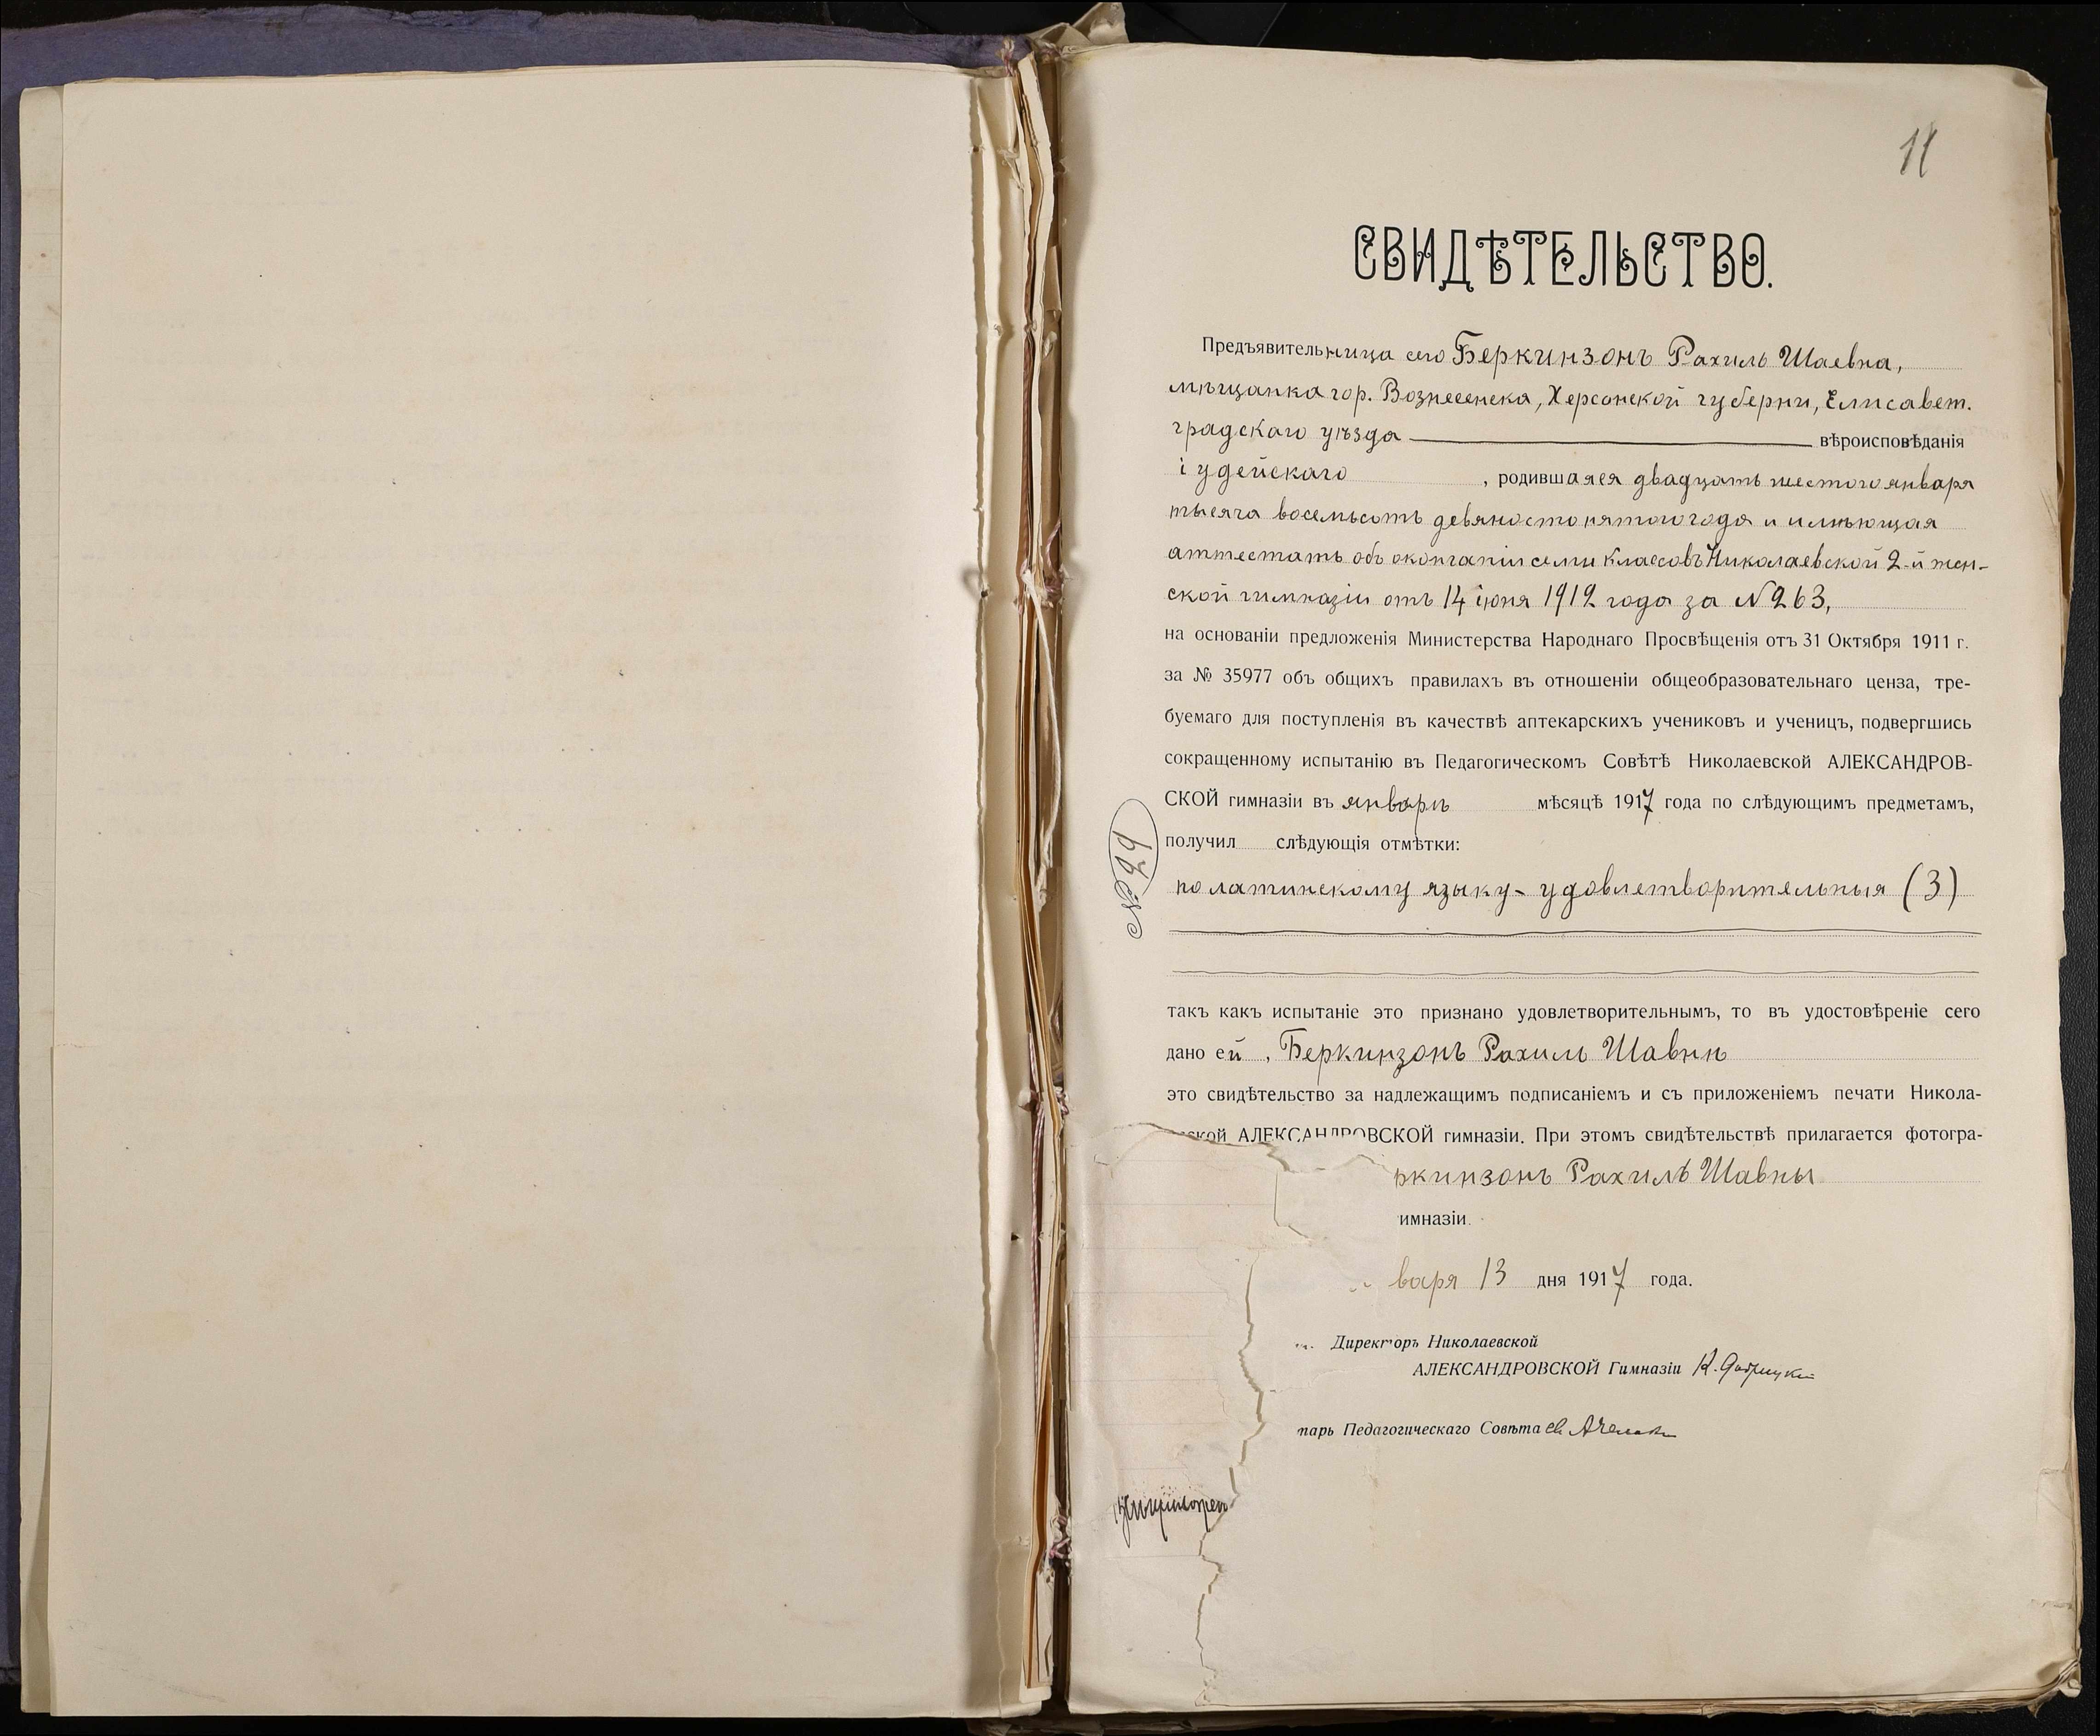 11
СВИДѢТЕЛЬСТВО.
Предъявительница сего Беркинзонъ Рахиль Шаевна,
мѣщанка гор. Вознесенска, Херсонской губерни, Елисавет.
градскаго уѣзда вѣроисповѣданія
іудейскаго , родившаяся двадцать шестого января
тысяча восемьсотъ девяносто пятого года и имѣющая
аттестатъ объ окончаніи семи классовъ Николаевской 2-й жен-
ской гимназіи отъ 14 іюня 1912 года за № 263,
на основаніи предложенія Министерства Народнаго Просвѣщенія отъ 31 Октября 1911 г.
за № 35977 объ общихъ правилахъ въ отношеніи общеобразовательнаго ценза, тре-
буемаго для поступленія въ качествѣ аптекарскихъ учениковъ и ученицъ, подвергшись
сокращенному испытанію въ Педагогическомъ Совѣтѣ Николаевской АЛЕКСАНДРОВ-
СКОЙ гимназіи въ январѣ мѣсяцѣ 1917 года по слѣдующимъ предметамъ,
получил слѣдующія отмѣтки:
по латинскому языку - удовлетворительныя (3)
такъ какъ испытаніе это признано удовлетворительнымъ, то въ удостовѣреніе сего
дано ей , Беркинзонъ Рахиль Шавнѣ
это свидѣтельство за надлежащимъ подписаніемъ и съ приложеніемъ печати Никола-
ской АЛЕКСАНДРОВСКОЙ гимназіи. При этомъ свидѣтельствѣ прилагается фотогра-
ркинзонъ Рахиль Шавны
имназіи.
варя 13 дня 1917 года.
Директоръ Николаевской
АЛЕКСАНДРОВСКОЙ Гимназіи К.
тарь Педагогическаго Совѣта